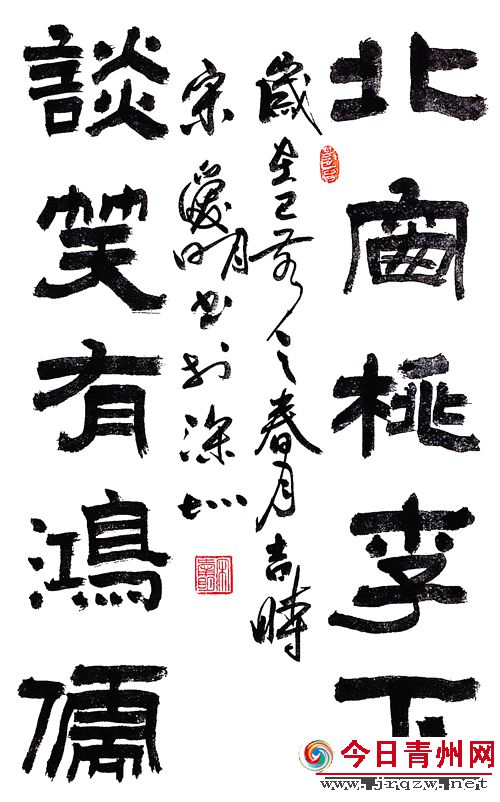 北窗桃李下
歲在己亥之春月吉時
宋愛明書於深圳
談笑有鴻儒
今日青州网
www.jrqzw.net